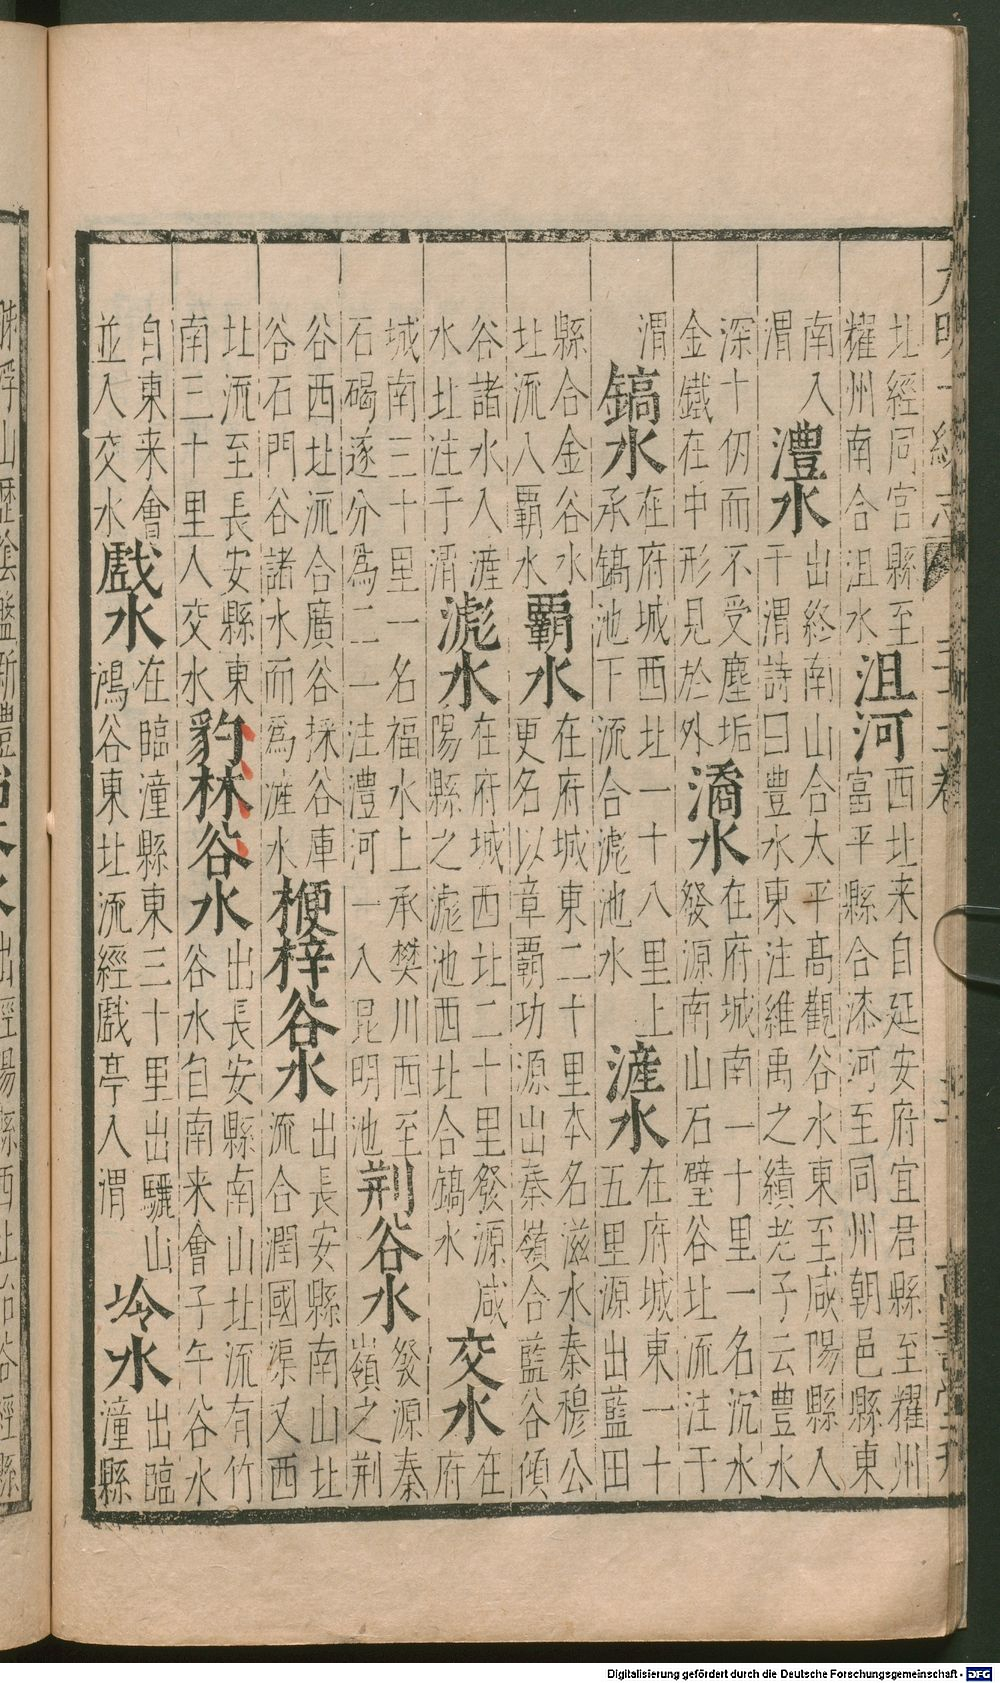 北經同官縣至
耀州南合沮水
沮河
西北来自延安府宜君縣至耀州
富平縣合漆河至同州朝邑縣東
南入
渭
澧水
出終南山合大平髙觀谷水東至咸陽縣入
于渭詩曰豊水東注維禹之績老子云豊水
深十仭而不受塵垢
金鐵在中形見於外
潏水
在府城南一十里一名沉水
發源南山石壁谷北流注于
渭
鎬水
在府城西北一十八里上
承鎬池下流合滮池水
滻水
在府城東一十
五里源出藍田
縣合金谷水
北流入覇水
覇水
在府城東二十里本名滋水秦穆公
更名以章覇功源出秦嶺合藍谷傾
谷諸水入滻
水北注于渭
滮水
在府城西北二十里發源咸
陽縣之滮池西北合鎬水
交水
在
府
城南三十里一名福水上承樊川西至
石碣逐分為二一注澧河一入昆明池
荆谷水
發源秦
嶺之荆
谷西北流合廣谷採谷庫
谷石門谷諸水而為滻水
楩梓谷水
出長安縣南山北
流合潤國渠又西
北流至長安縣東
南三十里入交水
豹林谷水
出長安縣南山北流有竹
谷水自南来會子午谷水
自東来會
並入交水
戲水
在臨潼縣東三十里出驪山
鴻谷東北流經戲亭入渭
冷水
出臨
潼縣
Digitalisierung gefördert durch die Deutsche Forschungsgemeinschaft - DFG